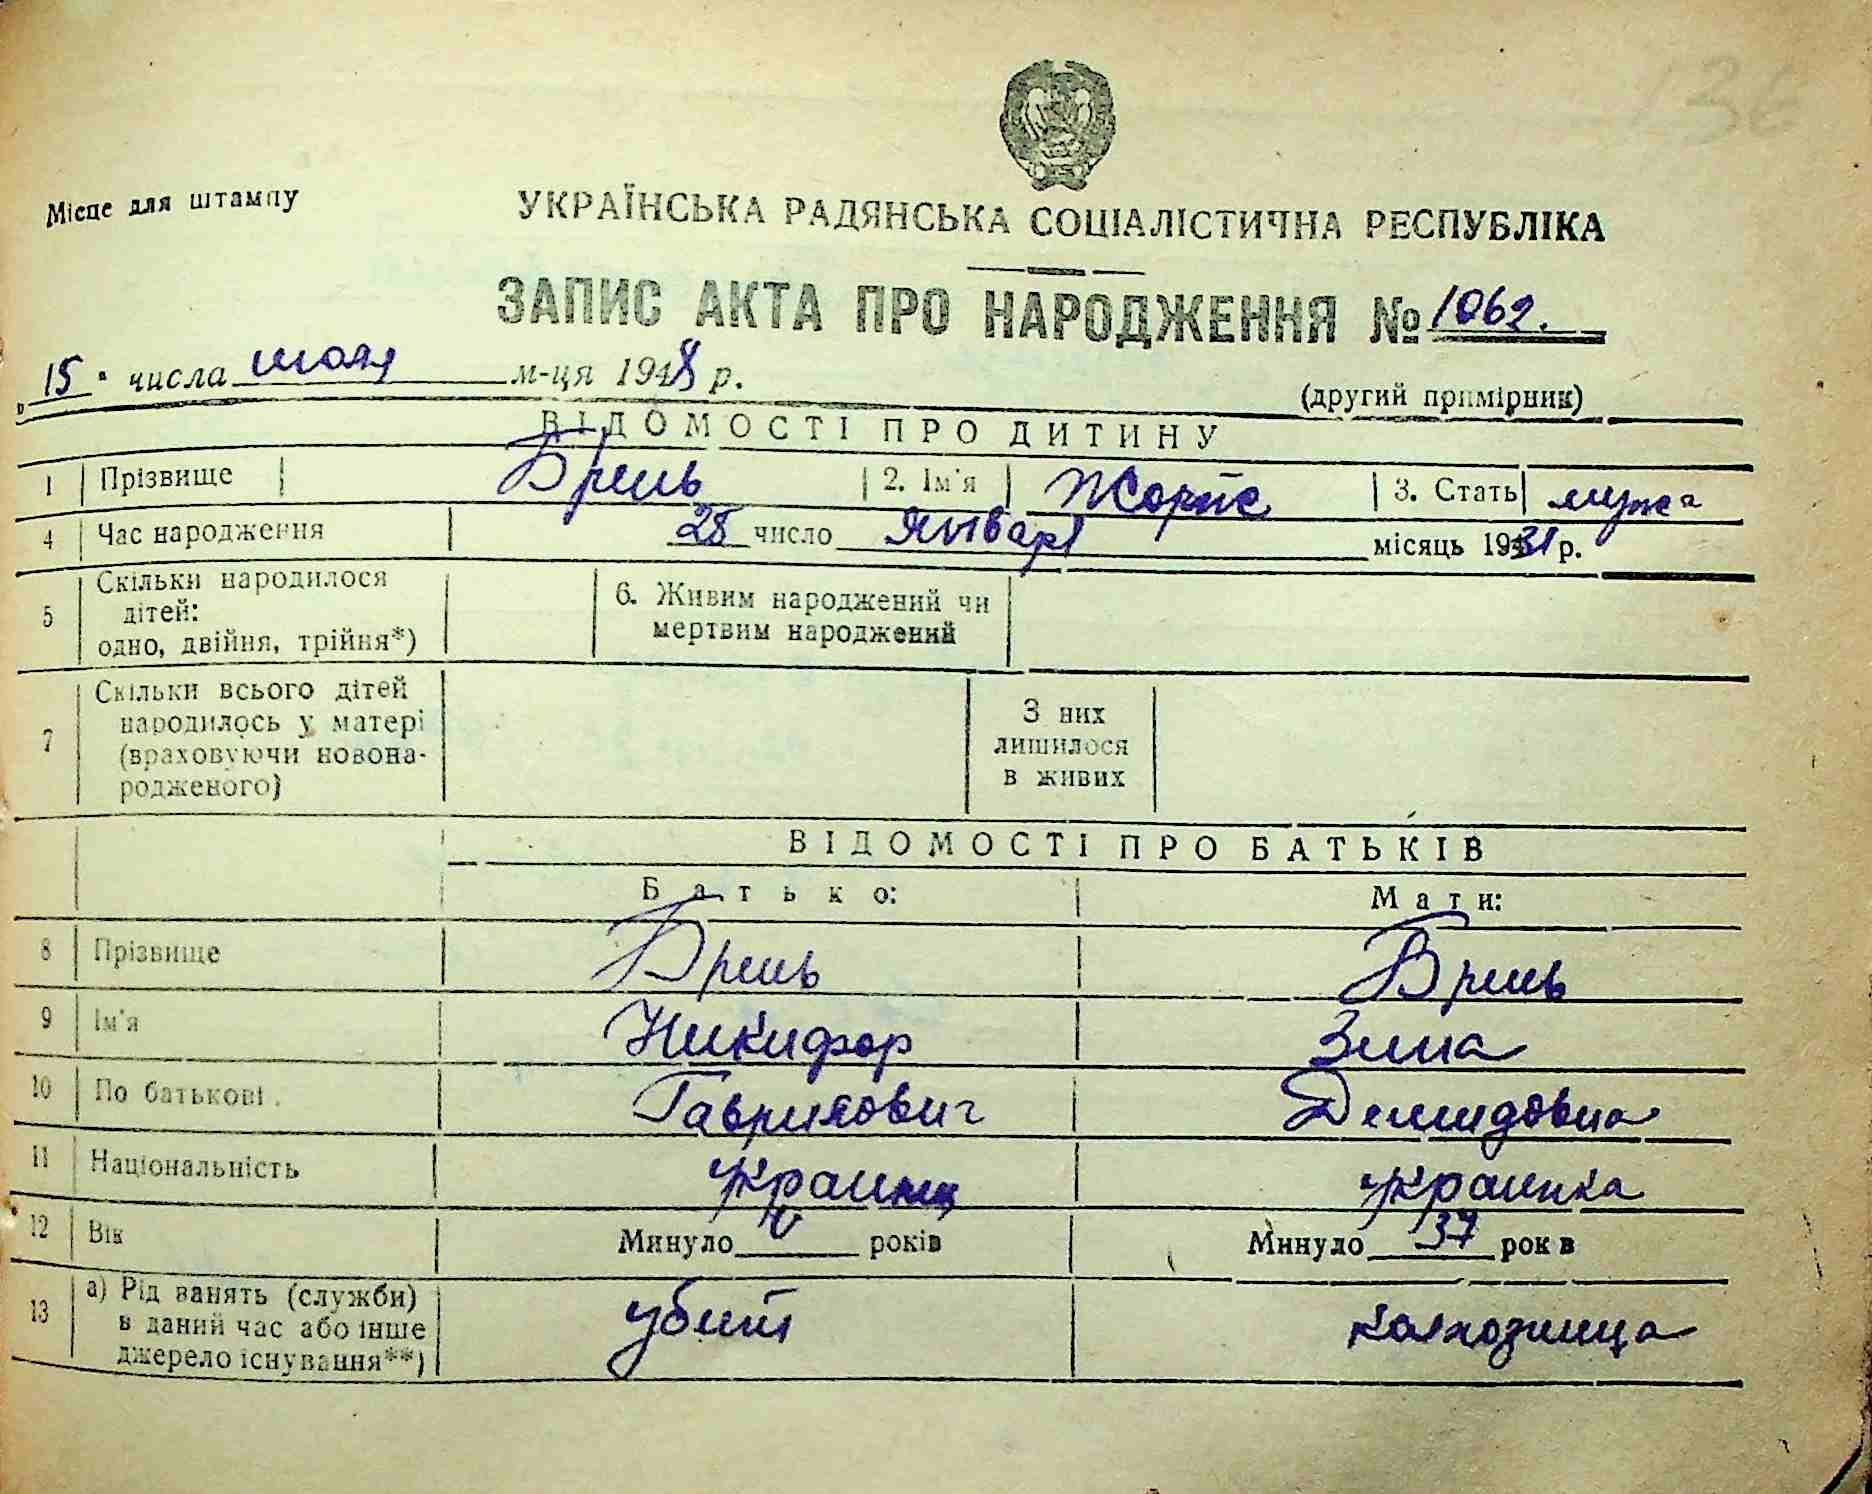 136
Місце для штампу
УКРАЇНСЬКА РАДЯНСЬКА СОЦІАЛІСТИЧНА РЕСПУБЛІКА
ЗАПИС АКТА ПРО НАРОДЖЕННЯ № 1062.
15 " числа июля м-ця 1948 р.
(другий примірник)
ВІДОМОСТІ ПРО ДИТИНУ
1 Прізвище Брень 2. Ім'я Жорж 3. Стать мужс
4 Час народження 28 число января місяць 1931 р.
5 Скільки народилося
дітей:
одно, двійня, трійня*)
6. Живим народжений чи
мертвим народжений
7 Скільки всього дітей
народилось у матері
(враховуючи новона-
родженого)
З них
лишилося
в живих
ВІДОМОСТІ ПРО БАТЬКІВ
Батько: Мати:
8 Прізвище Брень Брень
9 Ім'я Никифор Зина
10 По батькові Гаврилович Демидовна
11 Національність украинец украинка
12 Вік Минуло років Минуло 37 років
13 а) Рід занять (служби)
в даний час або інше
джерело існування**)
убит колхозница